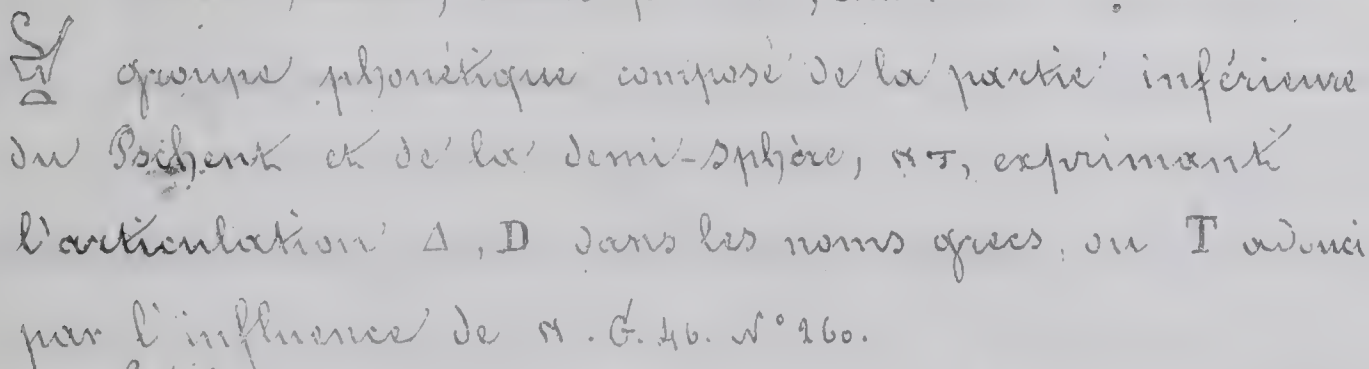 groupe phonétique composé de la partie inférieure
du Pschent et de la demi-sphère, ⲛⲧ, exprimant
l'articulation Δ, D dans les noms grecs, ou T adouci
par l'influence de ⲛ. G. 46. N° 260.